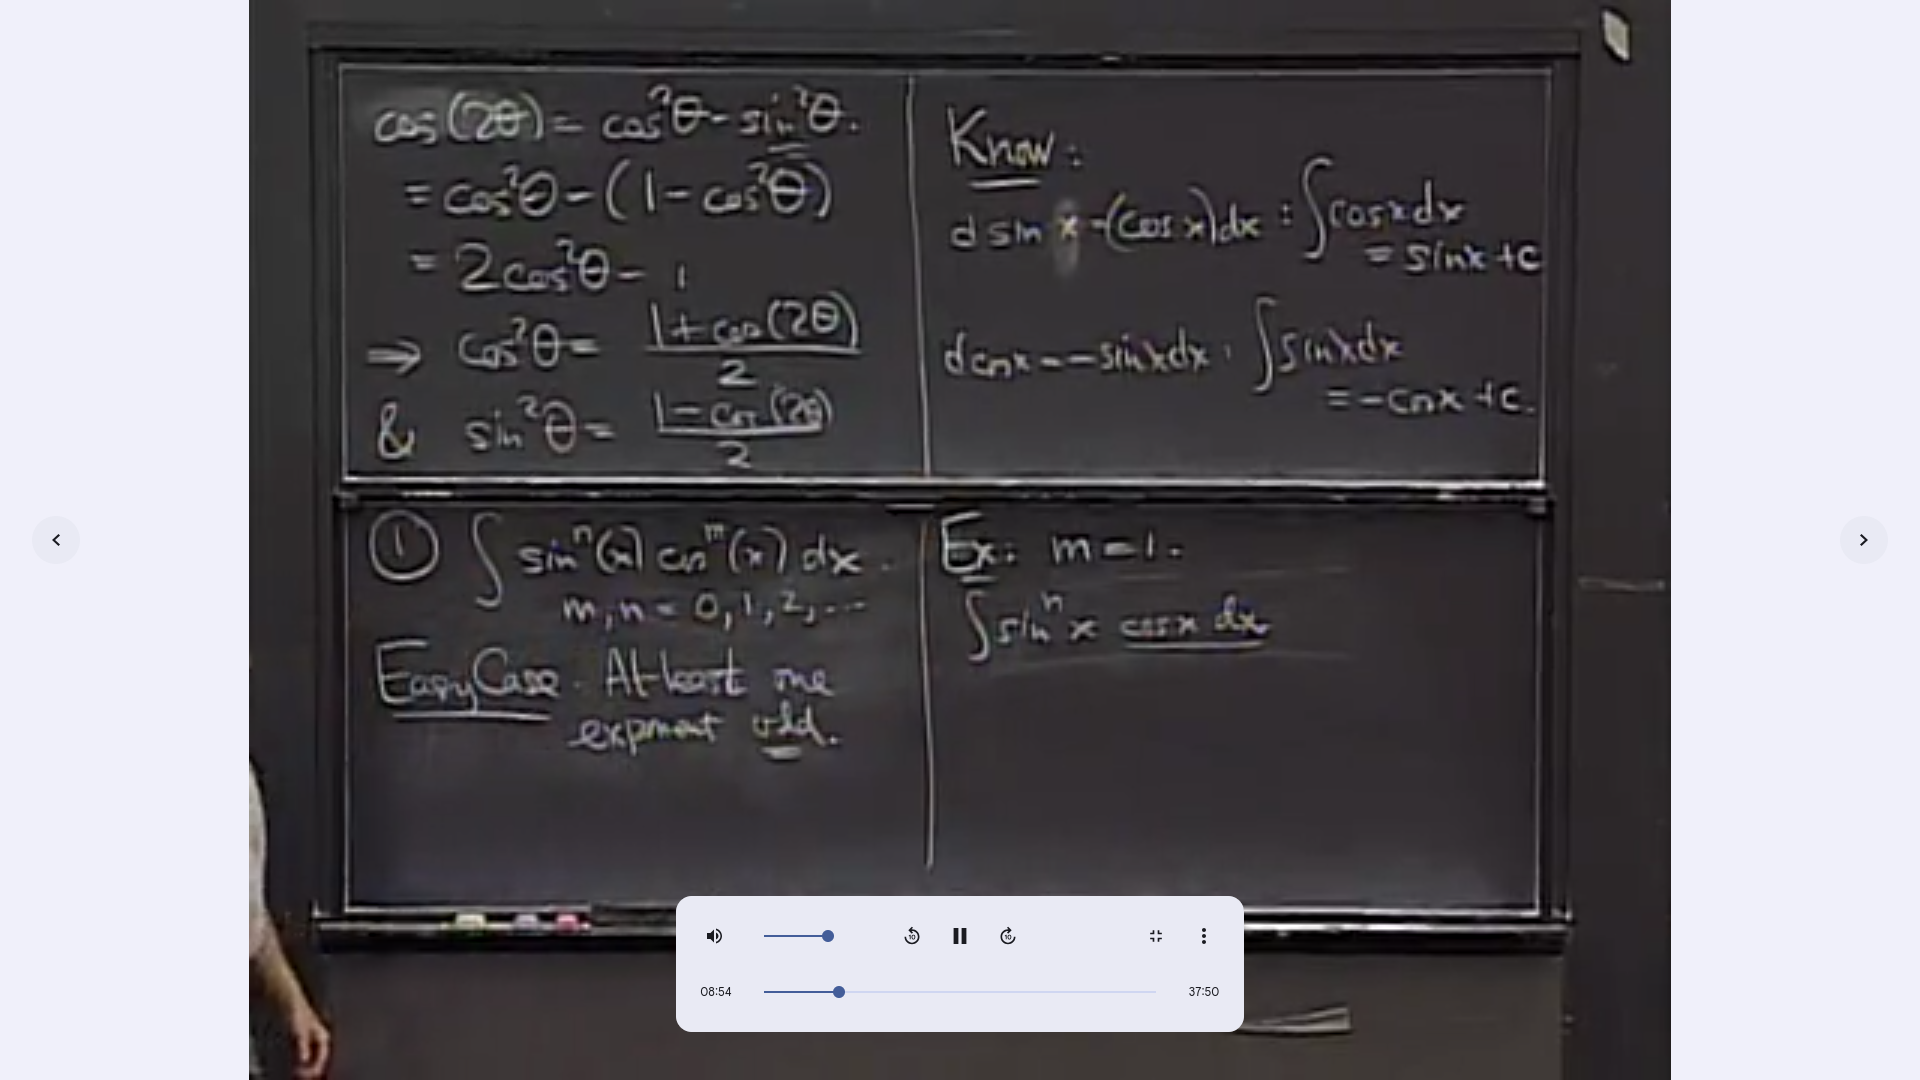 cos(2θ) = cos²θ - sin²θ.
= cos²θ - (1 - cos²θ)
= 2cos²θ - 1
⇒ cos²θ = (1 + cos(2θ))/2
& sin²θ = (1 - cos(2θ))/2
Know:
d sin x = (cos x)dx : ∫cos x dx
= sin x + c
d cos x = - sin x dx : ∫sin x dx
= -cos x + c.
① ∫ sinⁿ(x) cosᵐ(x) dx.
m, n = 0, 1, 2, ...
Easy Case. At least one
exponent odd.
Ex: m = 1.
∫sinⁿ x cos x dx
10
10
08:54
37:50